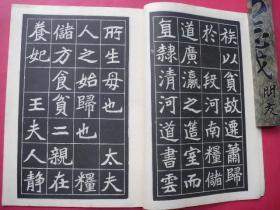 族以貧故遷蕭歸
於段河南糧儲
道廣瀛之簉室而
直隸清河道書雲
所生母也 太夫
人之始歸也 糧
儲方食貧二親在
養妃 王夫人静